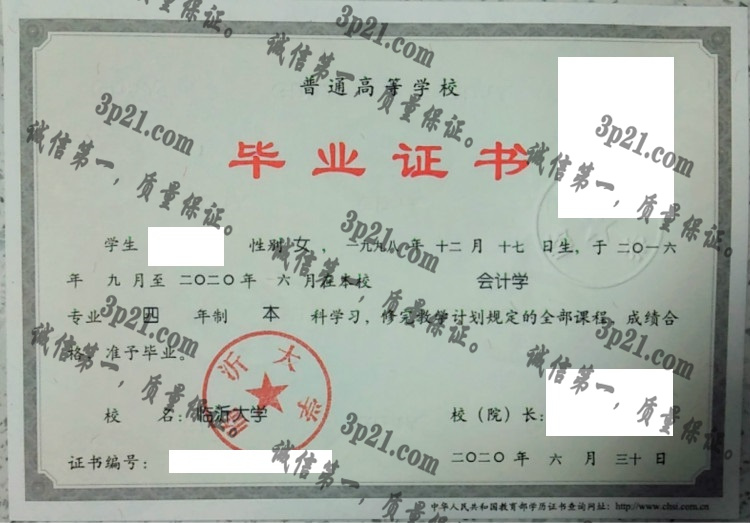 普通高等学校
毕业证书
学生 性别 女 ，一九九八年 十二 月 十七 日生，于 二〇一六
年 九 月至 二〇二〇 年 六 月在本校 会计学
专业 四 年制 本 科学习，修完教学计划规定的全部课程，成绩合
格，准予毕业。
临沂大学
校 名：临沂大学 校（院）长：
证书编号： 二〇二〇 年 六 月 三十 日
中华人民共和国教育部学历证书查询网址：http://www.chsi.com.cn
3p21.com
诚信第一，质量保证。
3p21.com
诚信第一，质量保证。
3p21.com
诚信第一，质量保证。
3p21.com
诚信第一，质量保证。
3p21.com
诚信第一，质量保证。
3p21.com
诚信第一，质量保证。
3p21.com
诚信第一，质量保证。